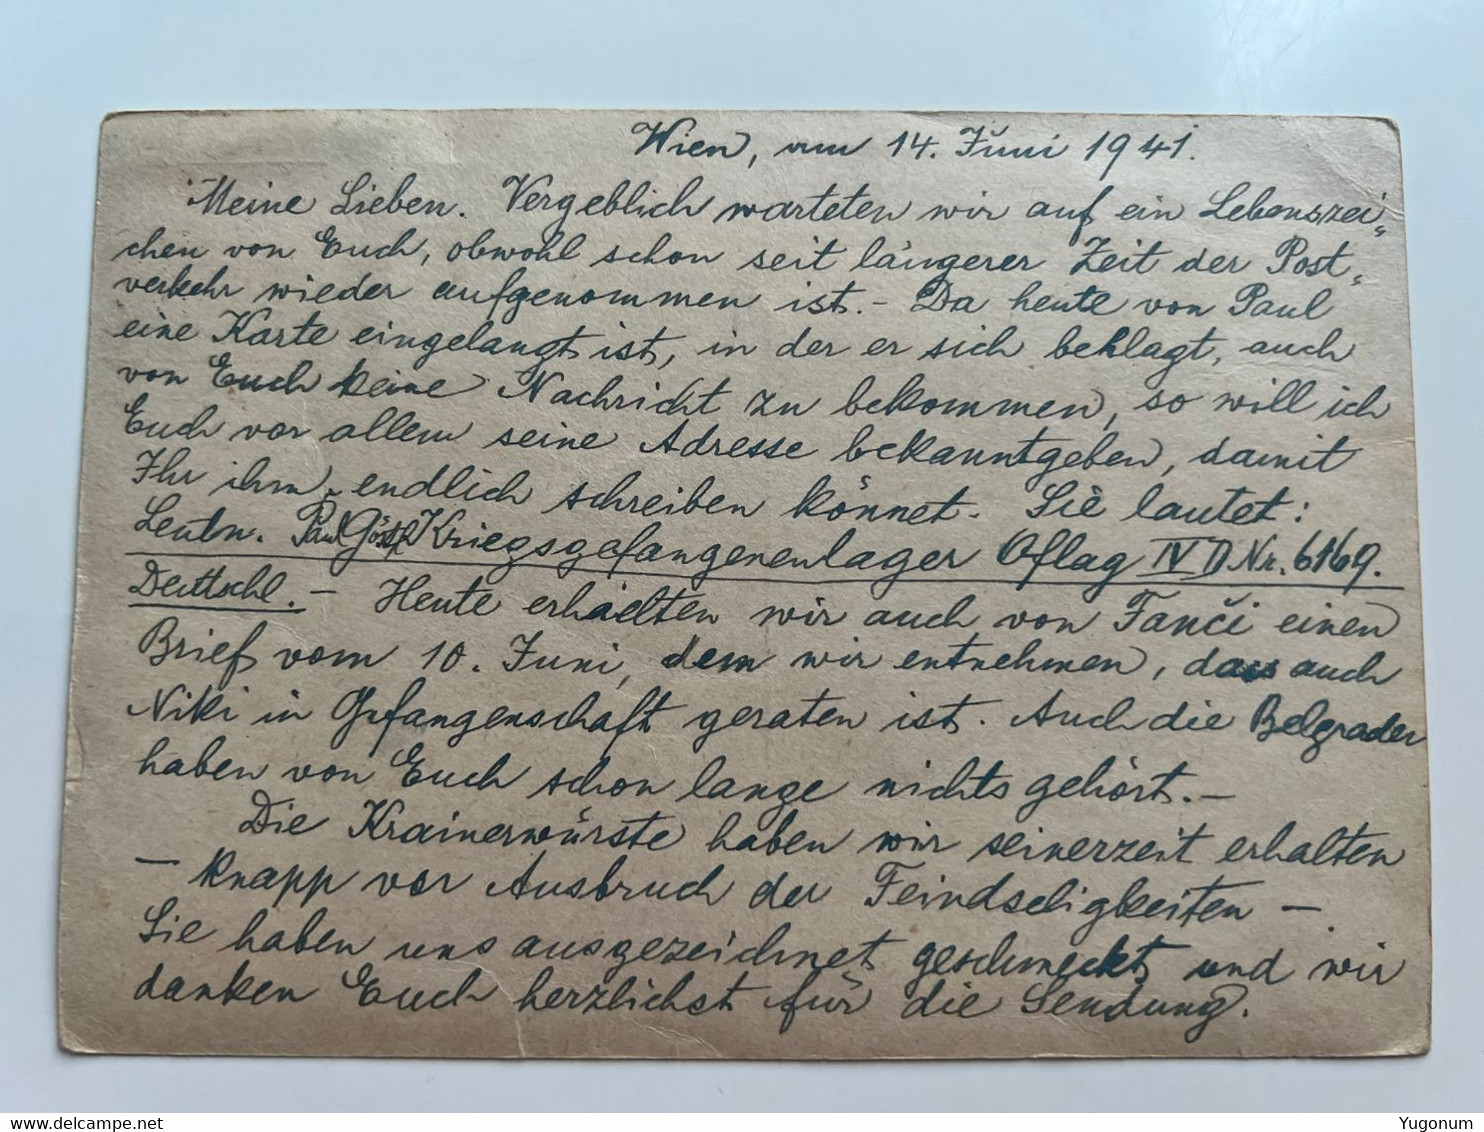 Wien, am 14. Juni 1941.
Meine Lieben. Vergeblich warteten wir auf ein Lebenszei„
chen von Euch, obwohl schon seit längerer Zeit der Post„
verkehr wieder aufgenommen ist. – Da heute von Paul
eine Karte eingelangt ist, in der er sich beklagt, auch
von Euch keine Nachricht zu bekommen, so will ich
Euch vor allem seine Adresse bekanntgeben, damit
Ihr ihm endlich schreiben könnet. Sie lautet:
Leutn. Paul Kriegsgefangenenlager Oflag IV D Nr. 6169.
Deutschl. – Heute erhielten wir auch von Fanči einen
Brief vom 10. Juni, dem wir entnehmen, dass auch
Niki in Gefangenschaft geraten ist. Auch die Belgrader
haben von Euch schon lange nichts gehört. –
Die Krainerwürste haben wir seinerzeit erhalten
– knapp vor Ausbruch der Feindseligkeiten –.
Sie haben uns ausgezeichnet geschmeckt und wir
danken Euch herzlichst für die Sendung.
delcampe.net
Yugonum